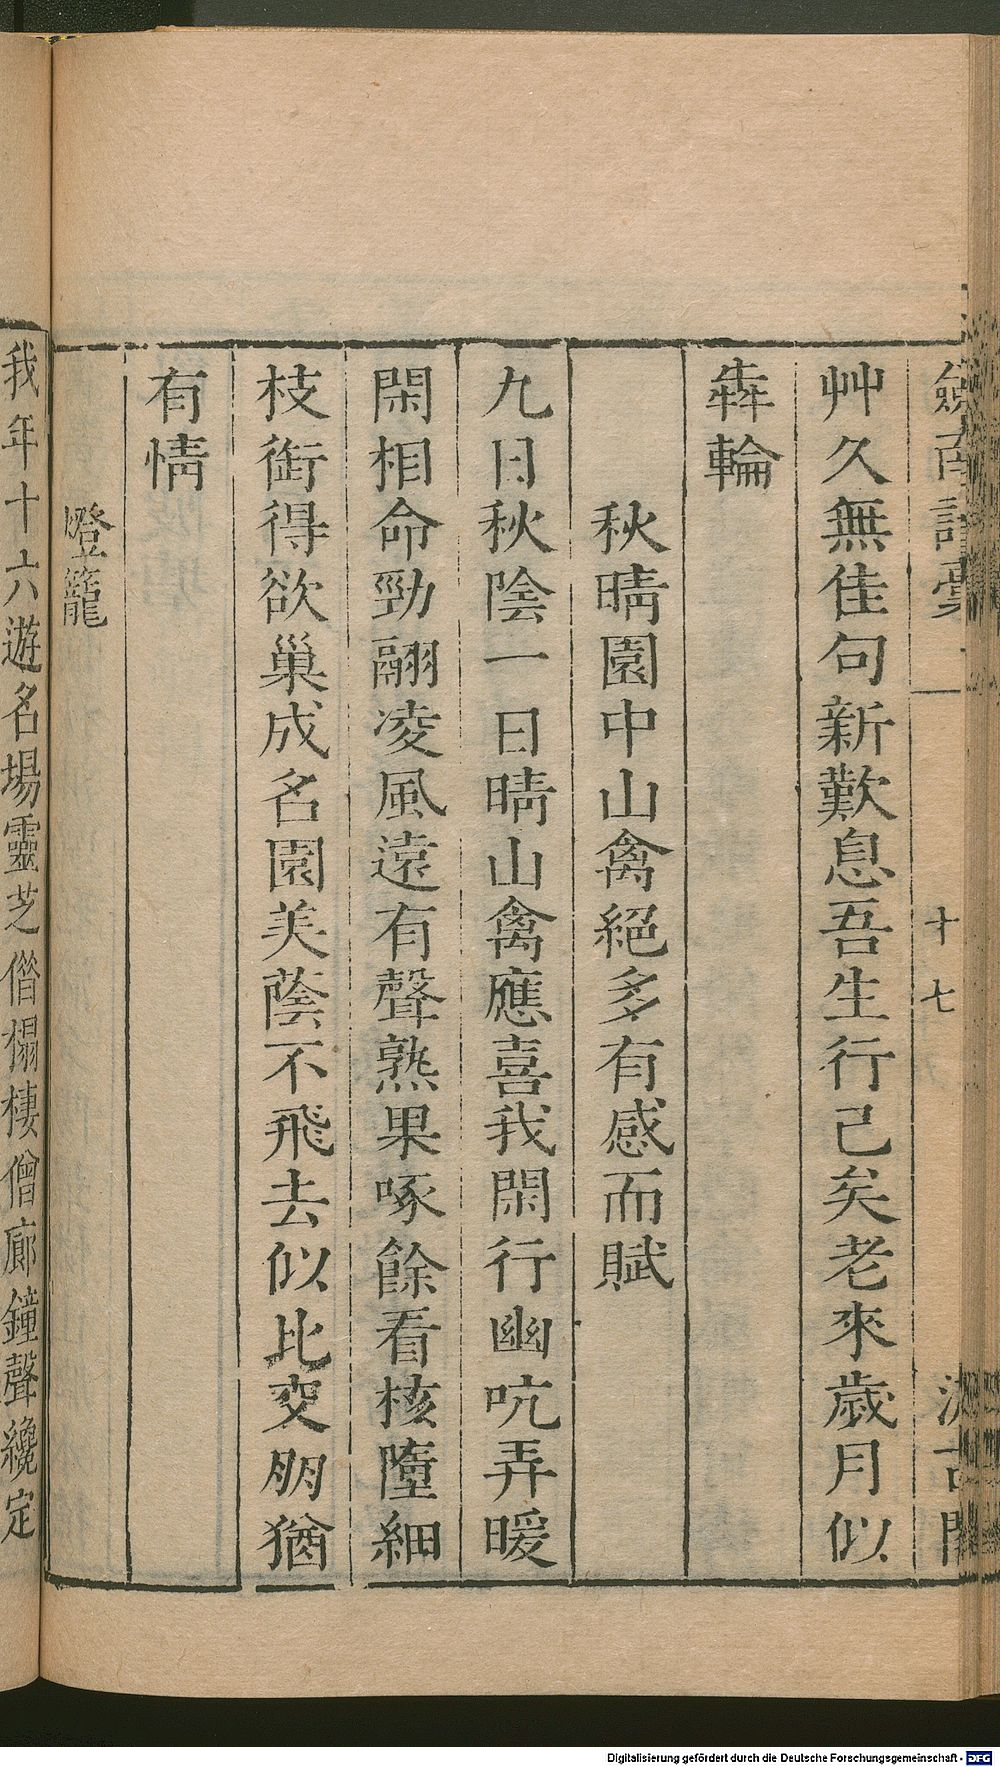 劍南詩稾
十七
汲古閣
艸久無佳句新歎息吾生行已矣老來歲月似
犇輪
秋晴園中山禽絕多有感而賦
九日秋陰一日晴山禽應喜我閑行幽吭弄暖
閑相命勁翮凌風遠有聲熟果啄餘看核墮細
枝銜得欲巢成名園美蔭不飛去似比交朋猶
有情
燈籠
我年十六遊名場靈芝僧榻棲僧廊鐘聲纔定
Digitalisierung gefördert durch die Deutsche Forschungsgemeinschaft - DFG